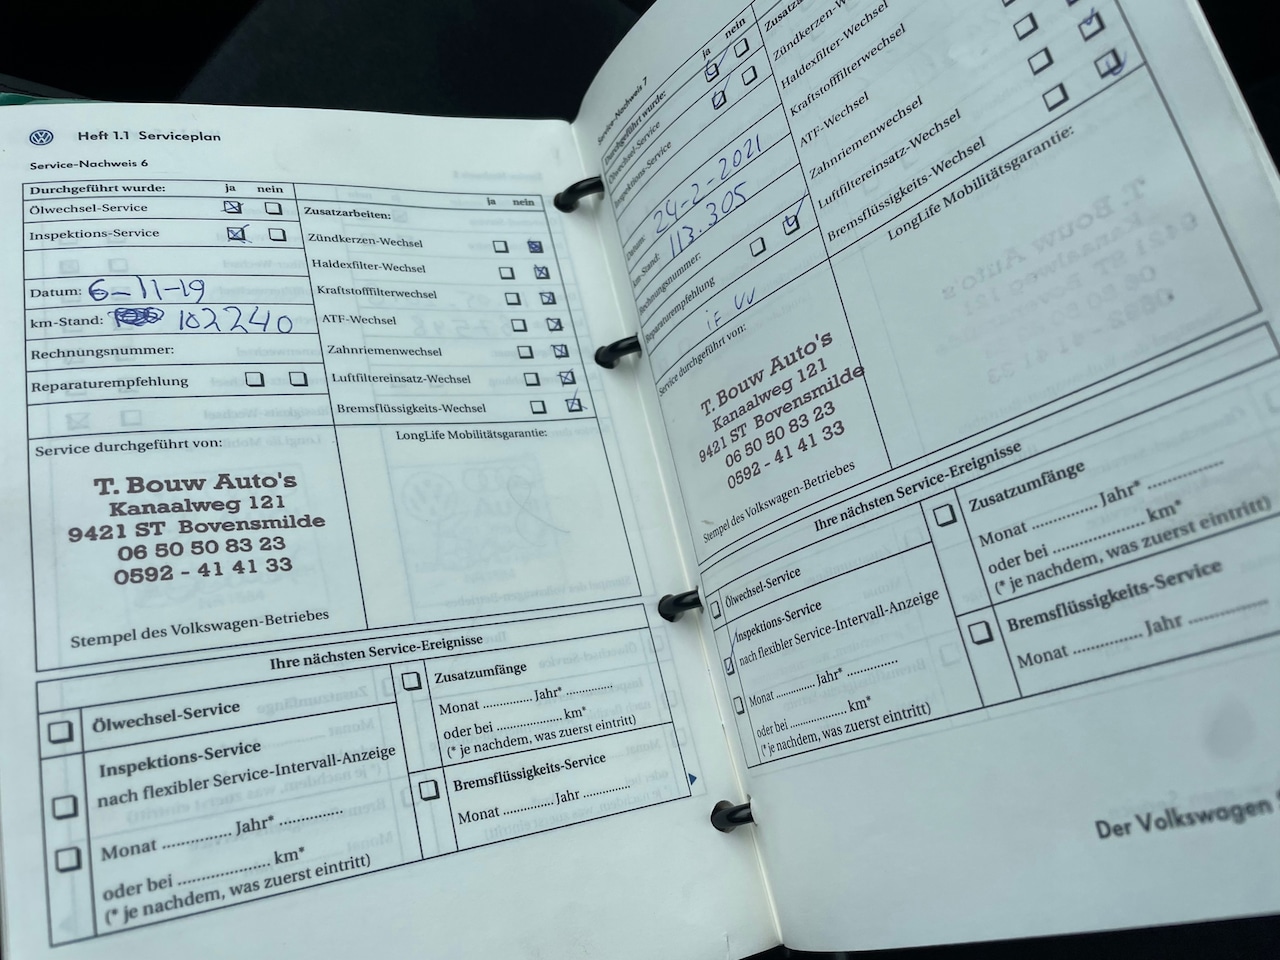 Heft 1.1 Serviceplan
Service-Nachweis 6
Durchgeführt wurde: ja nein
Ölwechsel-Service
Inspektions-Service
Datum: 6-11-19
km-Stand: 102240
Rechnungsnummer:
Reparaturempfehlung
ja nein
Zusatzarbeiten:
Zündkerzen-Wechsel
Haldexfilter-Wechsel
Kraftstofffilterwechsel
ATF-Wechsel
Zahnriemenwechsel
Luftfiltereinsatz-Wechsel
Bremsflüssigkeits-Wechsel
Service durchgeführt von:
T. Bouw Auto's
Kanaalweg 121
9421 ST Bovensmilde
06 50 50 83 23
0592 - 41 41 33
Stempel des Volkswagen-Betriebes
LongLife Mobilitätsgarantie:
Ihre nächsten Service-Ereignisse
Ölwechsel-Service
Inspektions-Service
nach flexibler Service-Intervall-Anzeige
Monat .............. Jahr* .............
oder bei .................... km*
(* je nachdem, was zuerst eintritt)
Zusatzumfänge
Monat ............. Jahr* .............
oder bei .................... km*
(* je nachdem, was zuerst eintritt)
Bremsflüssigkeits-Service
Monat ............. Jahr .............
Service-Nachweis 7
Durchgeführt wurde: ja nein
Ölwechsel-Service
Inspektions-Service
Datum: 24-2-2021
km-Stand: 113.305
Rechnungsnummer:
Reparaturempfehlung
Zündkerzen-Wechsel
Haldexfilter-Wechsel
Kraftstofffilterwechsel
ATF-Wechsel
Zahnriemenwechsel
Luftfiltereinsatz-Wechsel
Bremsflüssigkeits-Wechsel
Service durchgeführt von:
T. Bouw Auto's
Kanaalweg 121
9421 ST Bovensmilde
06 50 50 83 23
0592 - 41 41 33
Stempel des Volkswagen-Betriebes
LongLife Mobilitätsgarantie:
Ihre nächsten Service-Ereignisse
Ölwechsel-Service
Inspektions-Service
nach flexibler Service-Intervall-Anzeige
Monat ............. Jahr* .............
oder bei .................... km*
(* je nachdem, was zuerst eintritt)
Zusatzumfänge
Monat ............. Jahr* .............
oder bei .................... km*
(* je nachdem, was zuerst eintritt)
Bremsflüssigkeits-Service
Monat ............. Jahr .............
Der Volkswagen